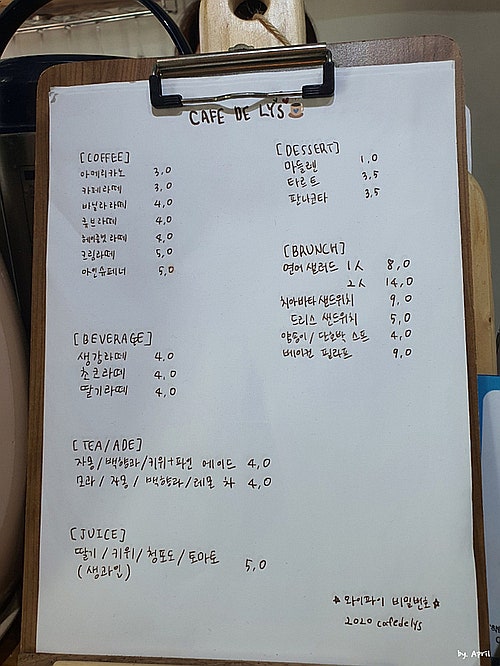 CAFE DE LY'S
[COFFEE]
아메리카노 3,0
카페라떼 3,0
바닐라라떼 4,0
큐브라떼 4,0
헤이즐넛 라떼 4,0
크림라떼 5,0
아인슈페너 5,0
[BEVERAGE]
생강라떼 4,0
초코라떼 4,0
딸기라떼 4,0
[TEA/ADE]
자몽/백향과/키위+파인 에이드 4,0
모과/자몽/백향과/레몬 차 4,0
[JUICE]
딸기/키위/청포도/토마토
(생과일) 5,0
[DESSERT]
마들렌 1,0
타르트 3,5
판나코타 3,5
[BRUNCH]
연어샐러드 1人 8,0
2人 14,0
치아바타샌드위치 9,0
드리스 샌드위치 5,0
양송이/단호박 스프 4,0
베이컨 필라프 9,0
☆와이파이 비밀번호☆
2020 cafedelys
by. April